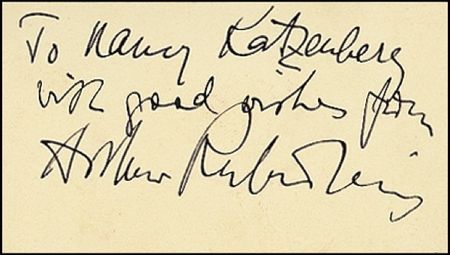 To Nancy Katzenberg
with good wishes from
Arthur Rubinstein